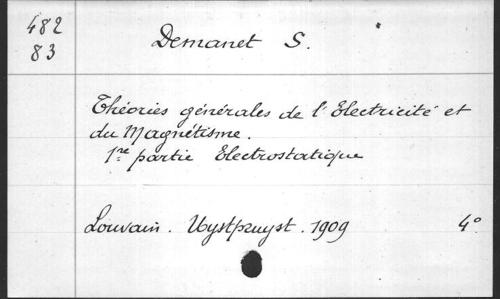 482
83
Demanet S.
Théories générales de l'Electricité et
du Magnétisme.
1re partie Electrostatique
Louvain. Uystpruyst. 1909 4°